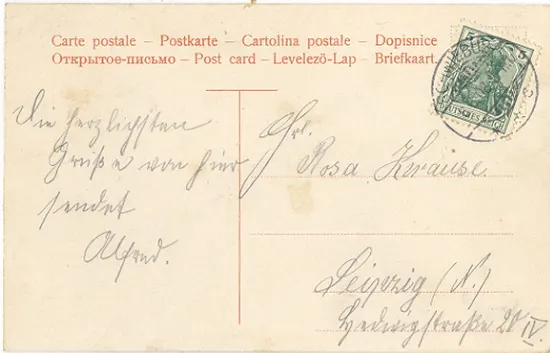 Carte postale – Postkarte – Cartolina postale – Dopisnice
Открытое-письмо – Post card – Levelező-Lap – Briefkaart.
Die herzlichsten
Grüße von hier
sendet
Alfred.
Frl.
Rosa Krause.
Leipzig (N.)
Hedwigstraße 20 IV.
5
5
DEUTSCHES REICH